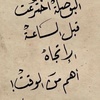 البوصلة اخترعت
قبل الساعة
الاتجاه
أهم من الوقت!